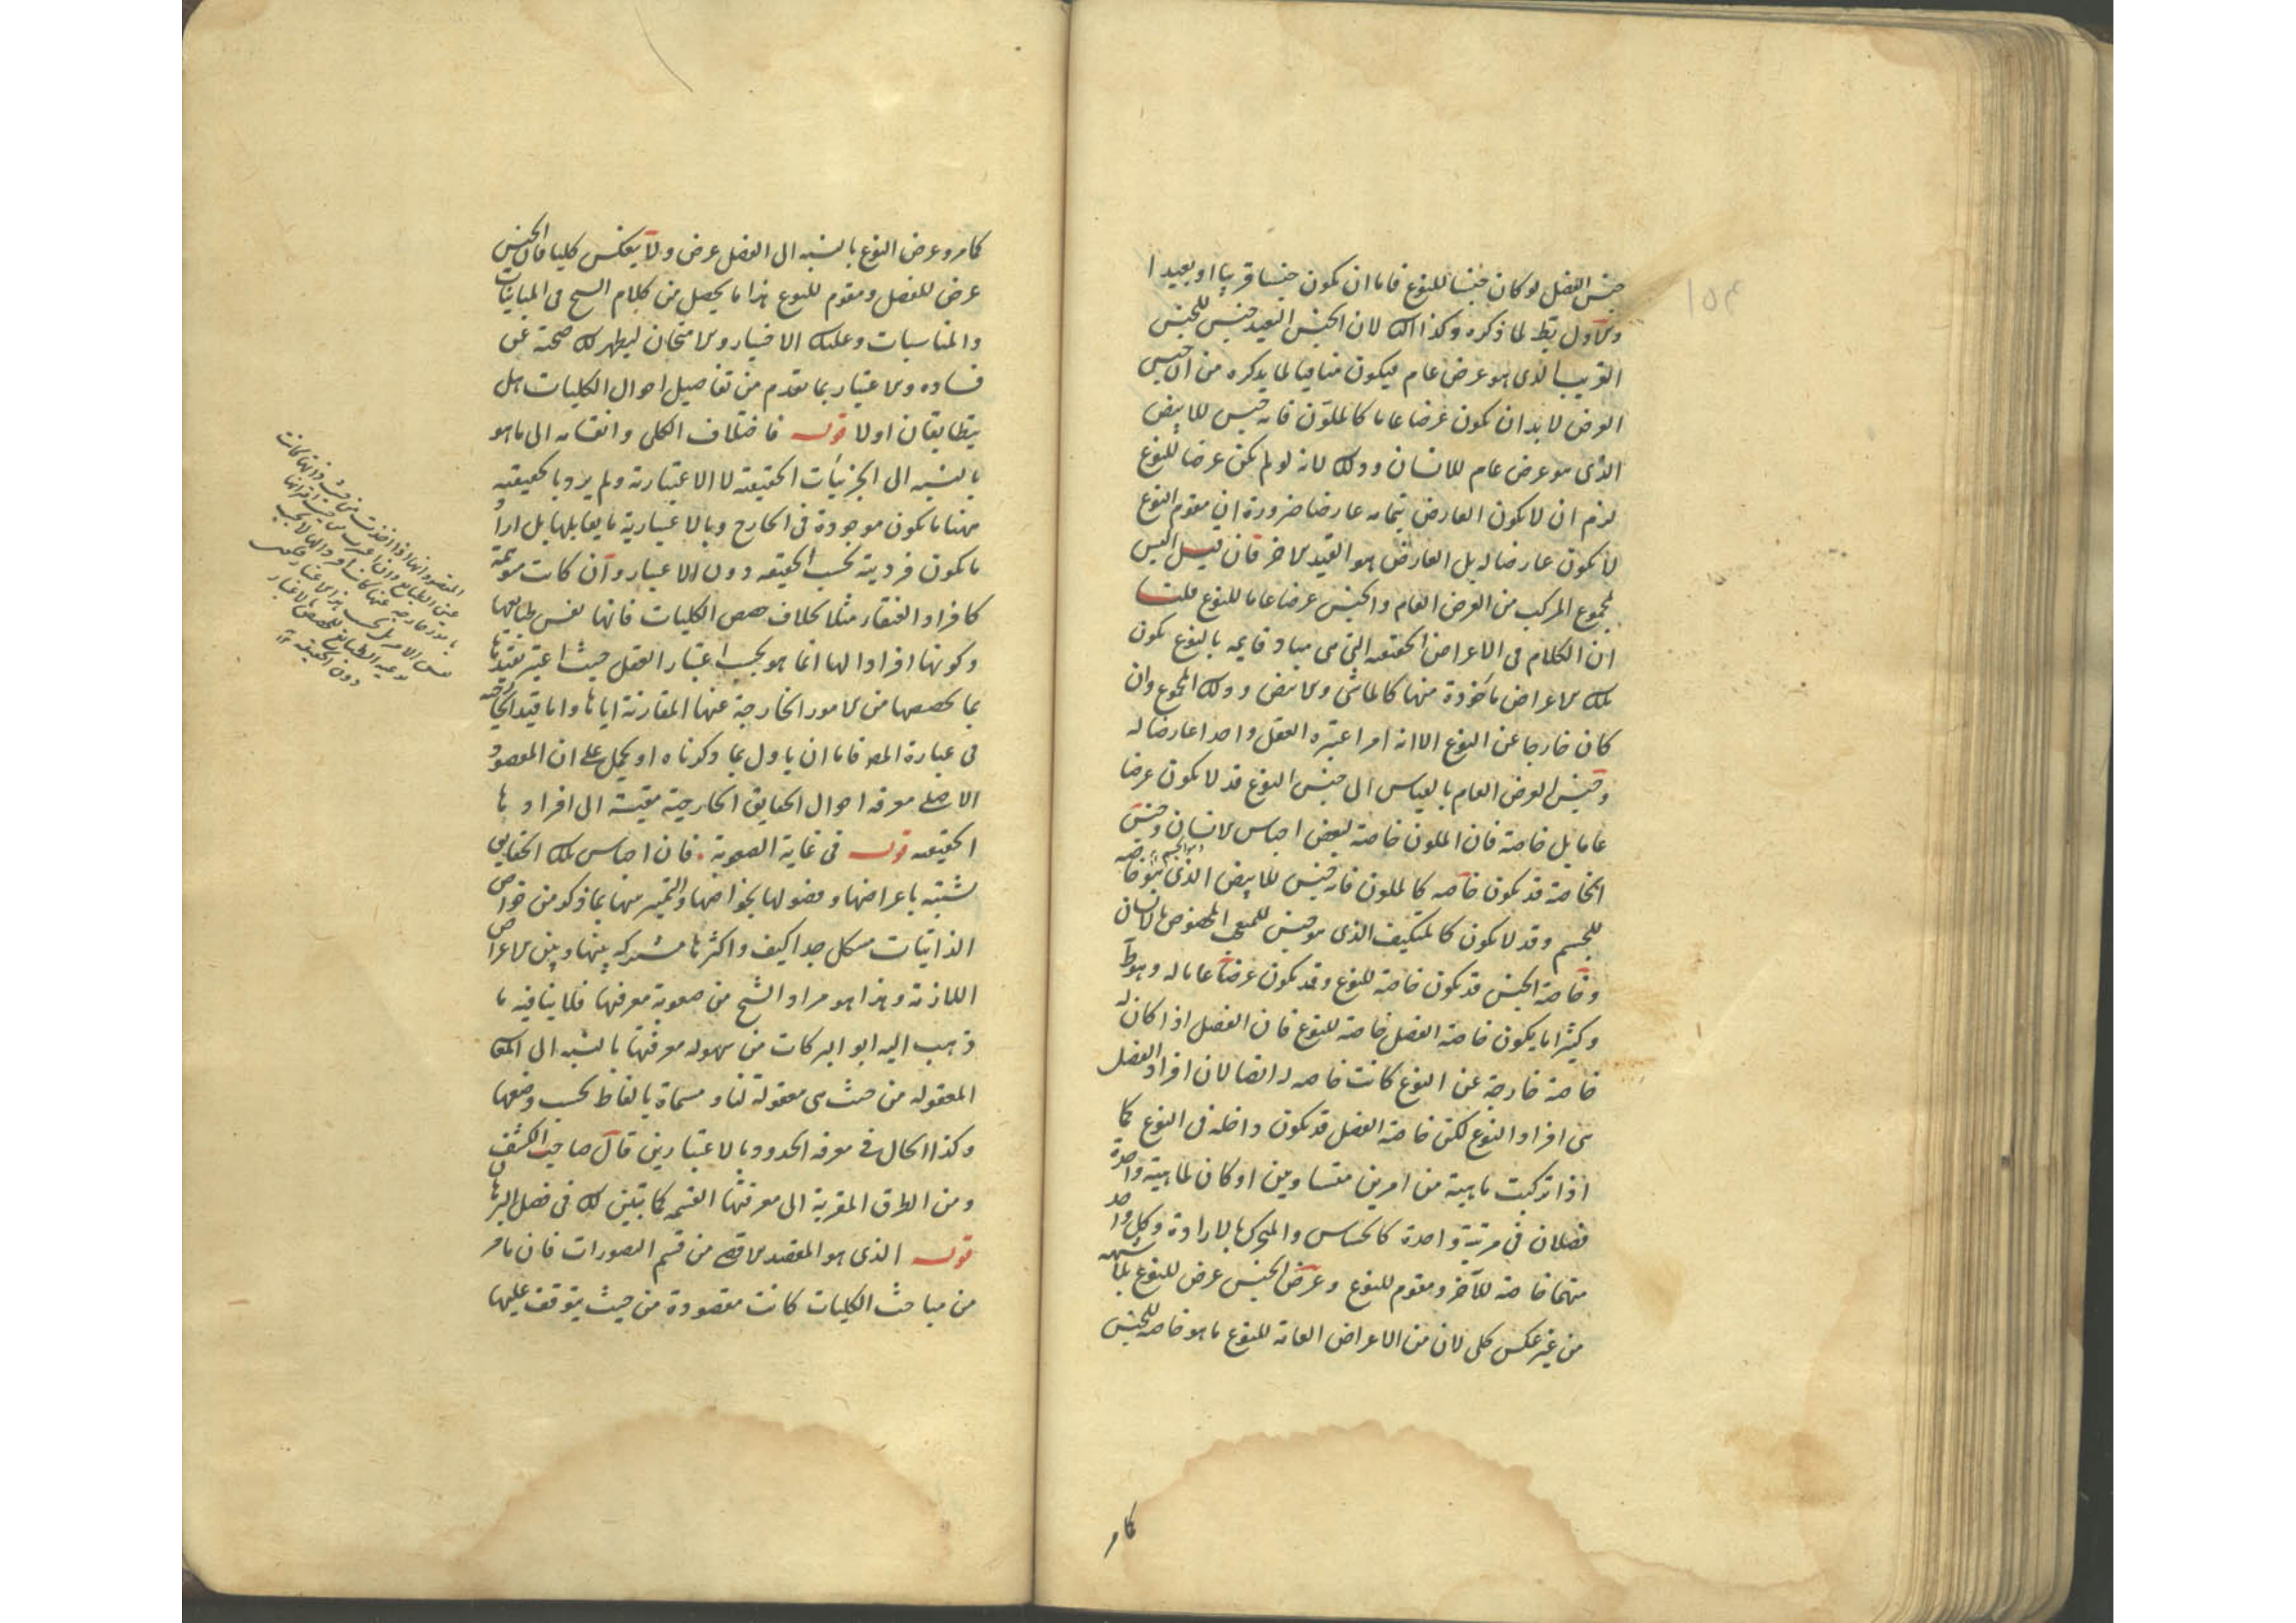 ١٥٣
جنس الفصل لو كان جنسا للنوع فاما ان يكون جنسا قريبا او بعيدا
والاول بط لما ذكره وكذا الثانى لان الجنس البعيد جنس للجنس
القريب الذى هو عرض عام فيكون منافيا لما يذكره من ان جنس
العرض لا بد ان يكون عرضا عاما كالملون فانه جنس للابيض
الذى هو عرض عام للانسان وذلك لانه لو لم يكن عرضا للنوع
لزم ان لا يكون العارض بتمامه عارضا ضرورة ان مقوم النوع
لا يكون عارضا له بل العارض هو القيد الاخر فان قيل اليس
المجموع المركب من العرض العام والجنس عرضا عاما للنوع قلت
ان الكلام فى الاعراض الحقيقية التى هى مباد قايمة بالنوع يكون
تلك الاعراض مأخوذة منها كالماشى والابيض وذلك المجموع وان
كان خارجا عن النوع الا انه امر اعتبره العقل واحدا عارضا له
وجنس العرض العام بالقياس الى جنس النوع قد لا يكون عرضا
عاما بل خاصة فان الملون خاصة لبعض اجناس الانسان وجنس
الخاصة قد يكون خاصة كالملون فانه جنس للابيض الذى هو خاصة
للجسم وقد لا يكون كالمتكيف الذى هو جنس للمتعجب المخصوص بالانسان
وخاصة الجنس قد تكون خاصة للنوع وقد يكون عرضا عاما له وهو ظ
وكثيرا ما يكون خاصة الفصل خاصة للنوع فان الفصل اذا كان له
خاصة خارجة عن النوع كانت خاصة له ايضا لان افراد الفصل
هى افراد النوع لكن خاصة الفصل قد تكون داخلة فى النوع كما
اذا تركبت ماهية من امرين متساويين او كان لماهية واحدة
فصلان فى مرتبة واحدة كالحساس والمتحرك بالارادة وكل واحد
منهما خاصة للآخر ومقوم للنوع وعرض الجنس عرض للنوع
من غير عكس كلى لان من الاعراض العامة للنوع ما هو خاصة للجنس
كما مر
كما مر وعرض النوع بالنسبة الى الفصل عرض ولا ينعكس كليا فان الجنس
عرض للفصل ومقوم للنوع هذا ما يحصل من كلام الشيخ فى المباينات
والمناسبات وعليك الاختبار والامتحان ليظهر لك صحته عن
فساده والاعتبار بما تقدم من تفاصيل احوال الكليات هل
يتطابقان اولا قوله فاختلاف الكلى وانقسامه الى ما هو
بالنسبة الى الجزئيات الحقيقية لا الاعتبارية ولم يرد بالحقيقية
ههنا ما يكون موجودة فى الخارج وبالاعتبارية ما يقابلها بل اراد
ما يكون فرديته بحسب الحقيقة دون الاعتبار وان كانت متوهمة
كافراد العنقاء مثلا بخلاف حصص الكليات فانها نفس طبايعها
وكونها افرادا لها انما هو بحسب اعتبار العقل حيث اعتبر تقيدها
بما يخصصها من الامور الخارجة عنها المقارنة اياها واما قيد الخارجية
فى عبارة المص فاما ان ياول بما ذكرناه او يحمل على ان المقصود
الاصلى معرفة احوال الحقايق الخارجية مقيسة الى افرادها
الحقيقية قوله فى غاية الصعوبة . فان اجناس تلك الحقايق
تشتبه باعراضها وفصولها بخواصها والتميز بينها بما ذكر من خواص
الذاتيات مشكل جدا كيف واكثرها مشتركة بينها وبين الاعراض
اللازمة وهذا هو مراد الشيخ من صعوبة معرفتها فلا ينافيه ما
ذهب اليه ابو البركات من سهولة معرفتها بالنسبة الى
المعقولة من حيث هى معقولة لنا ومسماة بالفاظ بحسب وضعها
وكذا الحال فى معرفة الحدود بالاعتبارين قال صاحب الكشف
ومن الطرق المقربة الى معرفتها القسمة كما تبين لك فى فصل البرهان
قوله الذى هو المقصد الاقصى من قسم التصورات فان ما مر
من مباحث الكليات كانت مقصودة من حيث يتوقف عليها